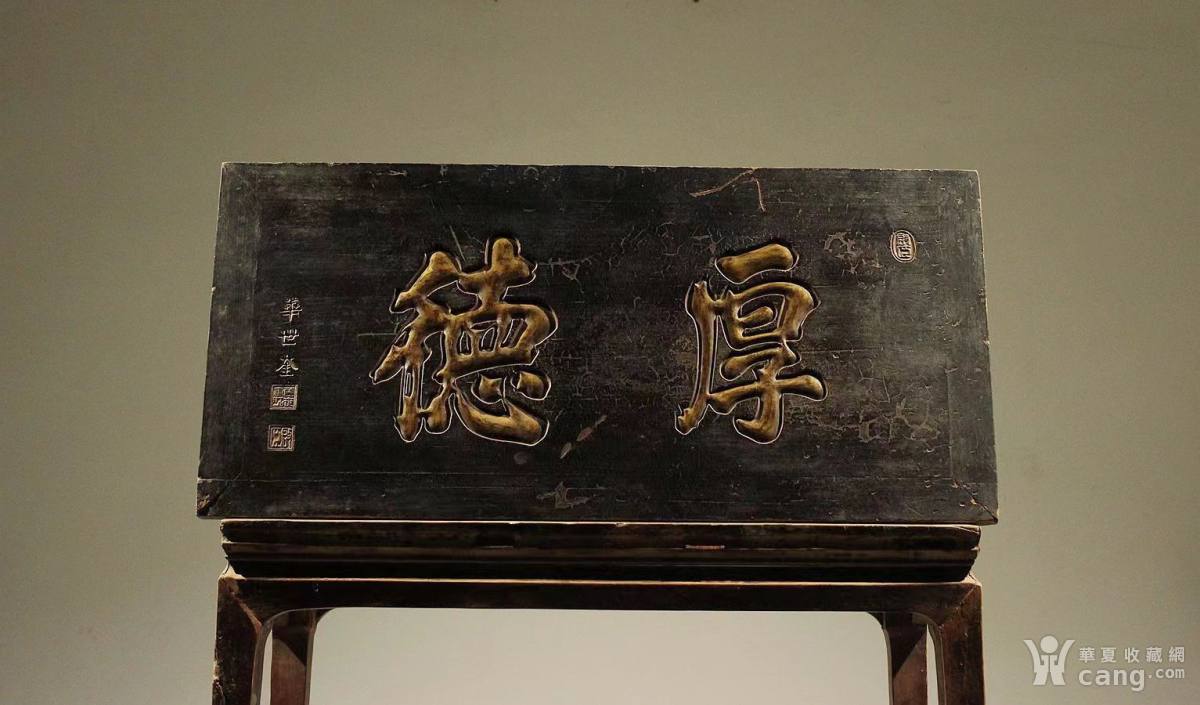 厚德
華世奎
華夏收藏網
cang.com